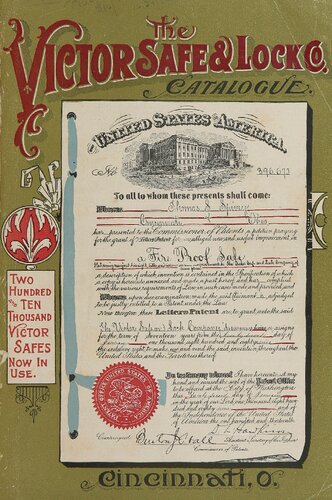 The
VICTOR SAFE & LOCK CO.
CATALOGUE.
UNITED STATES AMERICA.
No. 396,673
To all to whom these presents shall come:
Whereas Thomas J. Spivey
Cincinnati, Ohio
has presented to the Commissioner of Patents a petition praying
for the grant of Letters Patent for an alleged new and useful improvement in
a Fire Proof Safe
a description of which invention is contained in the Specification of which
a copy is hereunto annexed and made a part hereof and has complied
with the various requirements of Law in such cases made and provided and
Whereas upon due examination made the said Claimant is adjudged
to be justly entitled to a Patent under the Law.
Now therefore these Letters Patent are to grant unto the said
The Victor Safe and Lock Company
for the term of seventeen years from the
one thousand eight hundred and eighty
the exclusive right to make, use and vend the said invention throughout the
United States and the Territories thereof.
In testimony whereof I have hereunto set my
hand and caused the seal of the Patent Office
to be affixed at the City of Washington
this day of
in the year of our Lord one thousand eight
hundred and eighty and of the
Independence of the United States
of America the one hundred and thirteenth.
Countersigned
Benton J. Hall
Commissioner of Patents.
TWO
HUNDRED
AND TEN
THOUSAND
VICTOR
SAFES
NOW IN
USE.
Cincinnati, O.